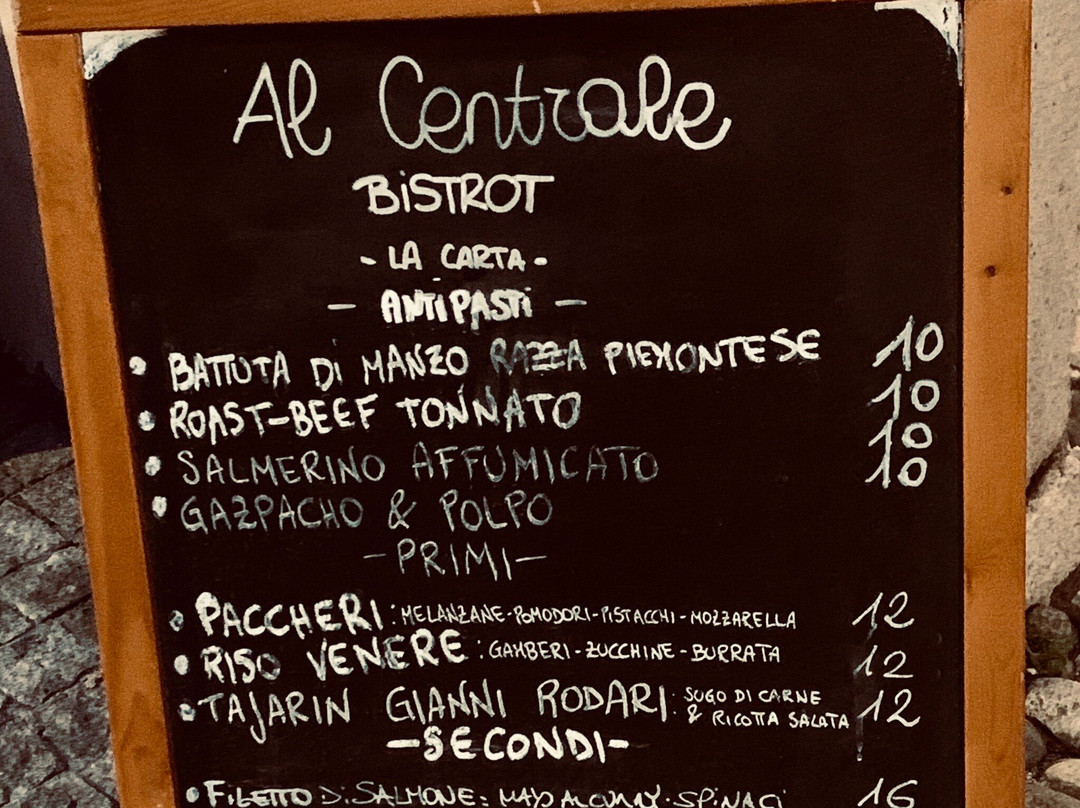 Al Centrale
BiSTROT
- LA CARTA -
- ANTiPASTi -
• BATTUTA Di MANZO RAZZA PIEMONTESE 10
• ROAST-BEEF TONNATO 10
• SALMERINO AFFUMICATO 10
• GAZPACHO & POLPO 10
- PRIMI -
• PACCHERI: MELANZANE-POMODORI-PISTACCHI-MOZZARELLA 12
• RISO VENERE: GAMBERI-ZUCCHINE-BURRATA 12
• TAJARIN GIANNI RODARI: SUGO DI CARNE & RICOTTA SALATA 12
- SECONDI -
• FILETTO Di SALMONE: MAYO AL CURRY-SPINACI 16